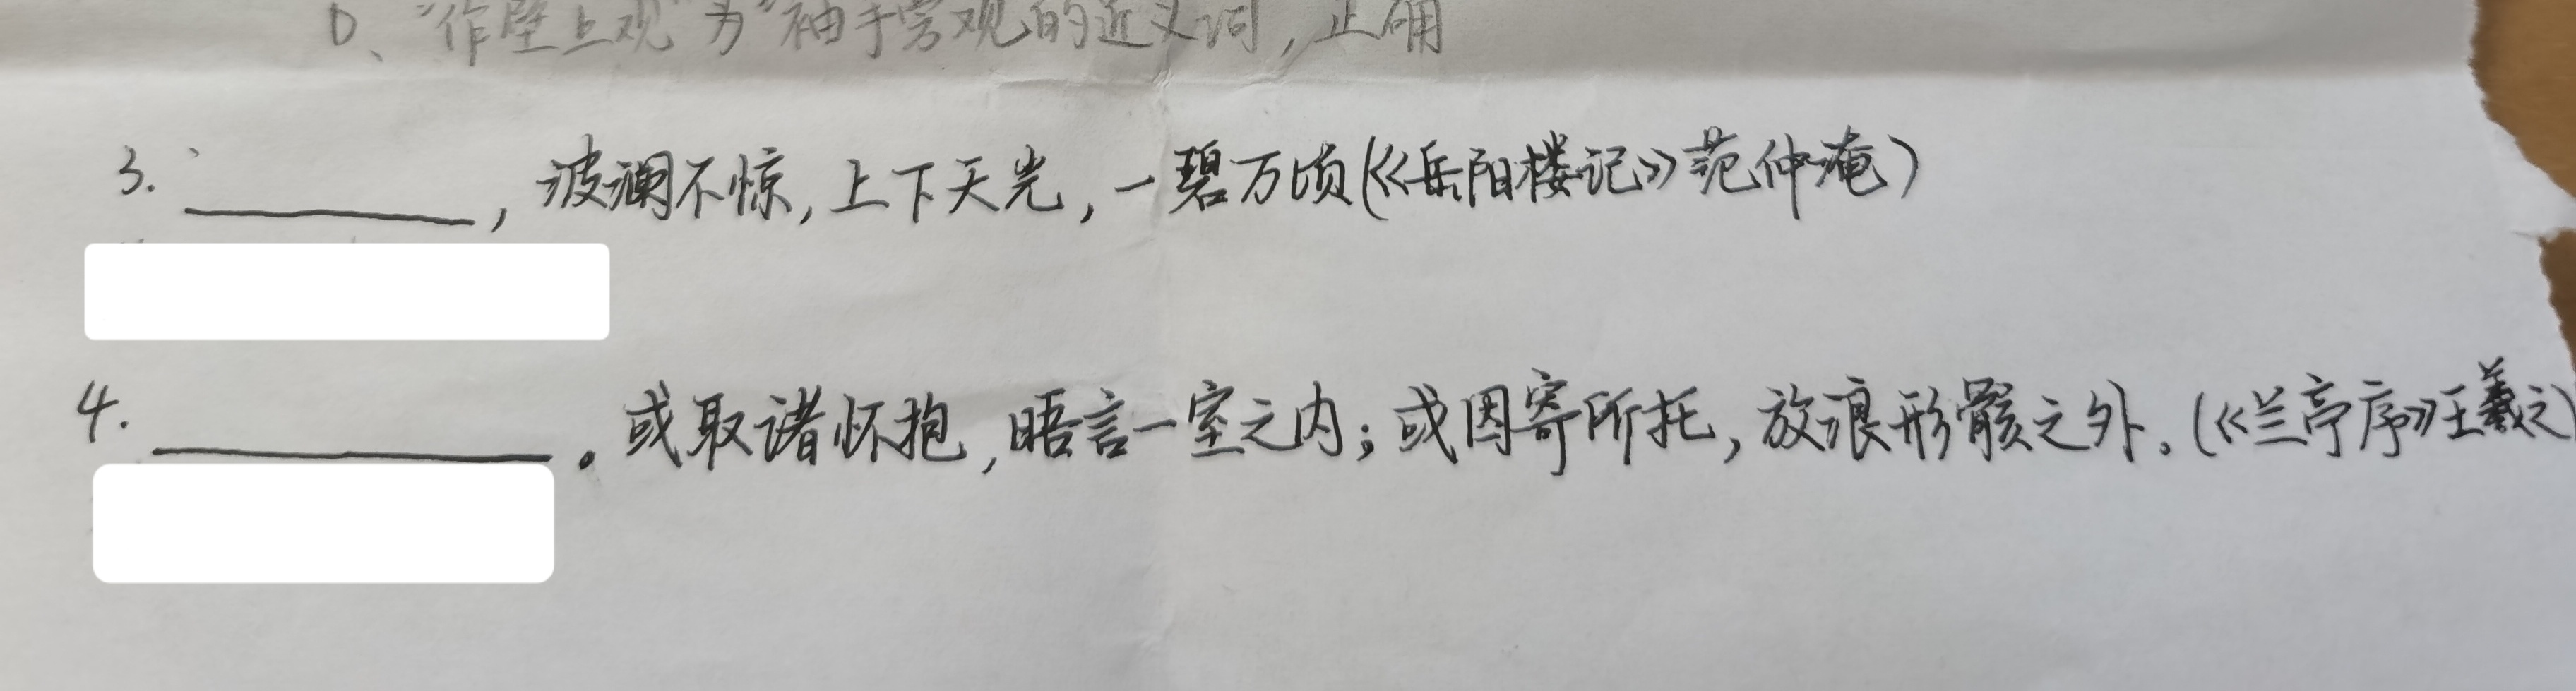 D、“作壁上观”为“袖手旁观的近义词，正确
3. ，波澜不惊，上下天光，一碧万顷（《岳阳楼记》范仲淹）
4. 。或取诸怀抱，晤言一室之内；或因寄所托，放浪形骸之外。（《兰亭序》王羲之）